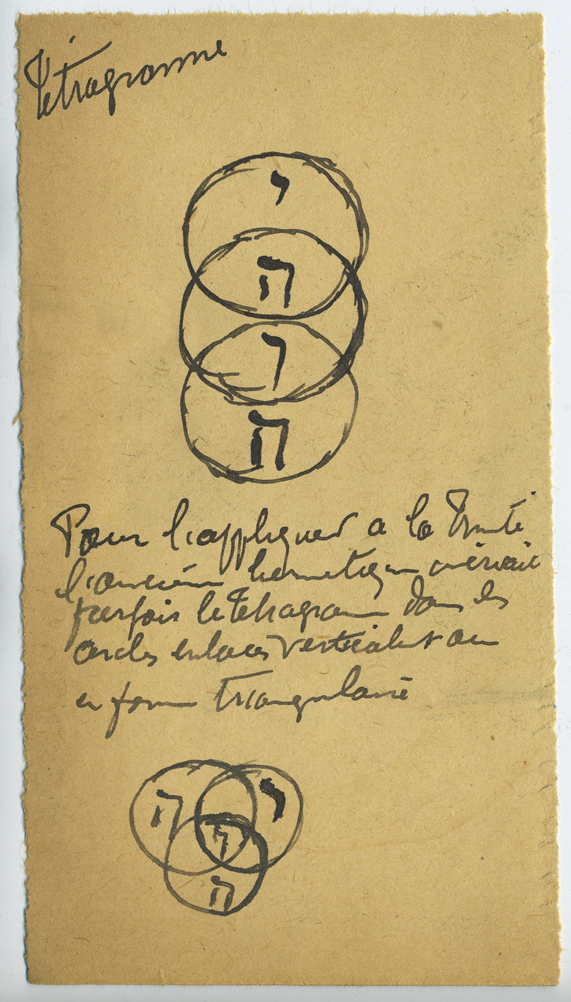 Tétragramme
י
ה
ו
ה
Pour l'appliquer a la Trinité
l'ancien hermétisme
parfois le tétragramme dans des
cercles enlacés verticalement ou
en forme triangulaire
ה י
ו
ה